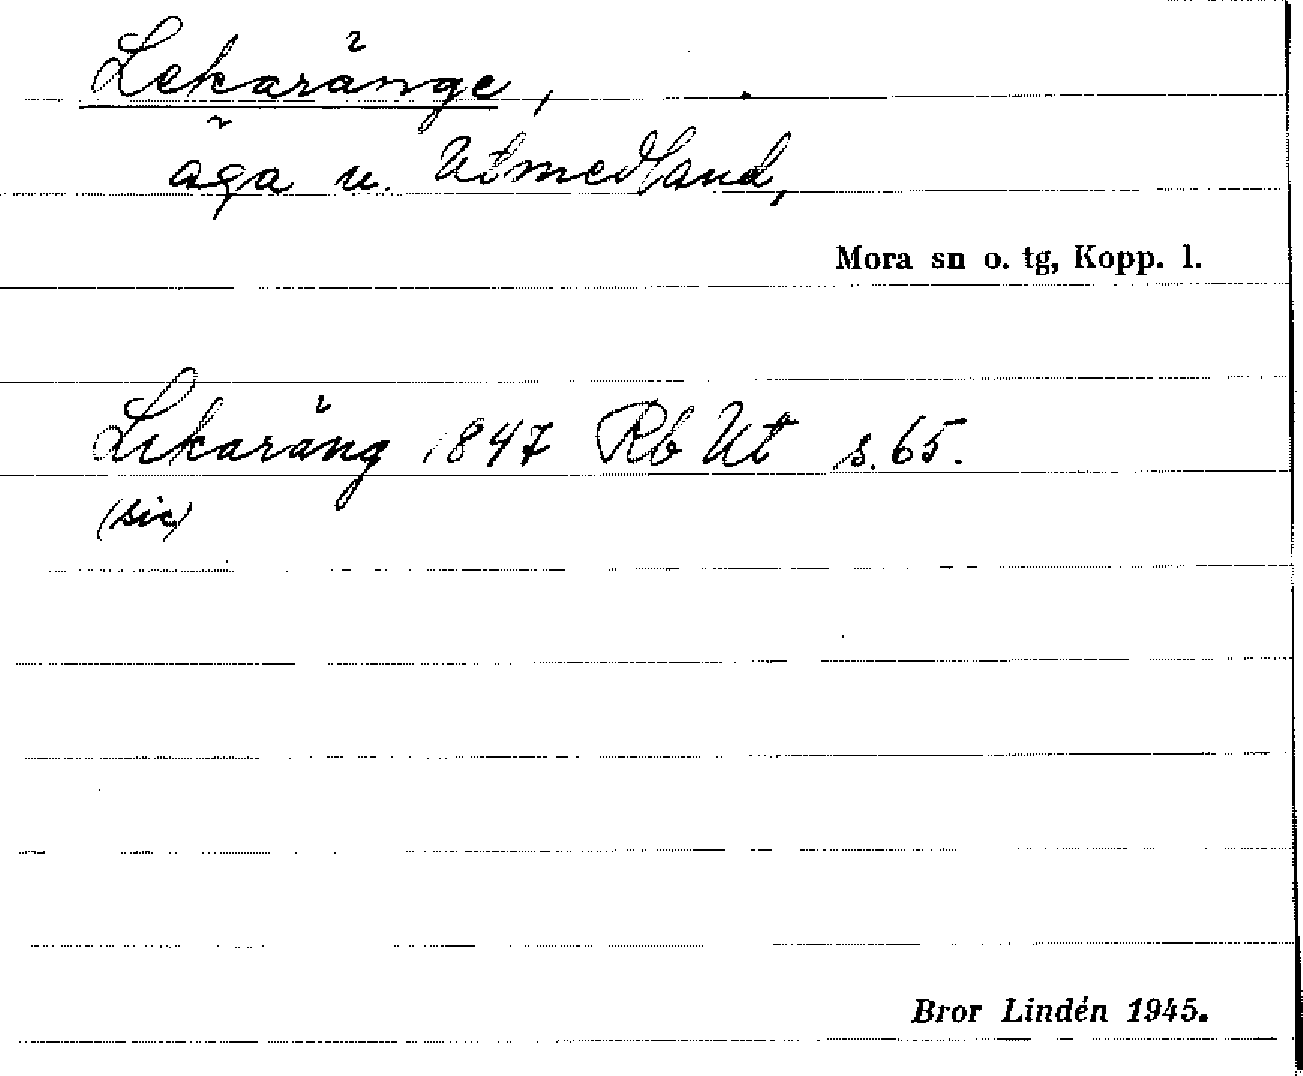 Lekaränge,
äga u. Utmedland,
Mora sn o. tg, Kopp. l.
Lekaräng 1847 Rb Ut s. 65.
(sic)
Bror Lindén 1945.